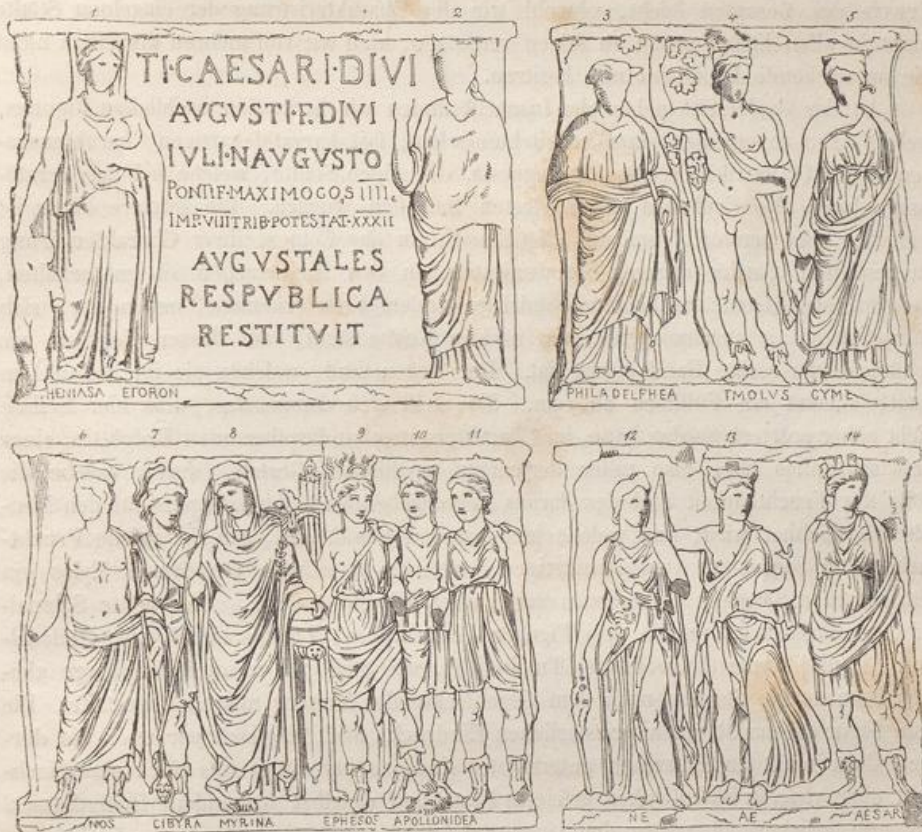 1 2
TI·CAESARI·DIVI
AVGVSTI·F·DIVI
IVLI·N·AVGVSTO
PONTIF·MAXIMO COS IIII
IMP·VIII TRIB·POTESTAT·XXXII
AVGVSTALES
RESPVBLICA
RESTITVIT
HENIASA ETORON
3 4 5
PHILADELPHEA TMOLVS CYME
6 7 8 9 10 11
NOS CIBYRA MYRINA EPHESOS APOLLONIDEA
12 13 14
NE AE AESAR